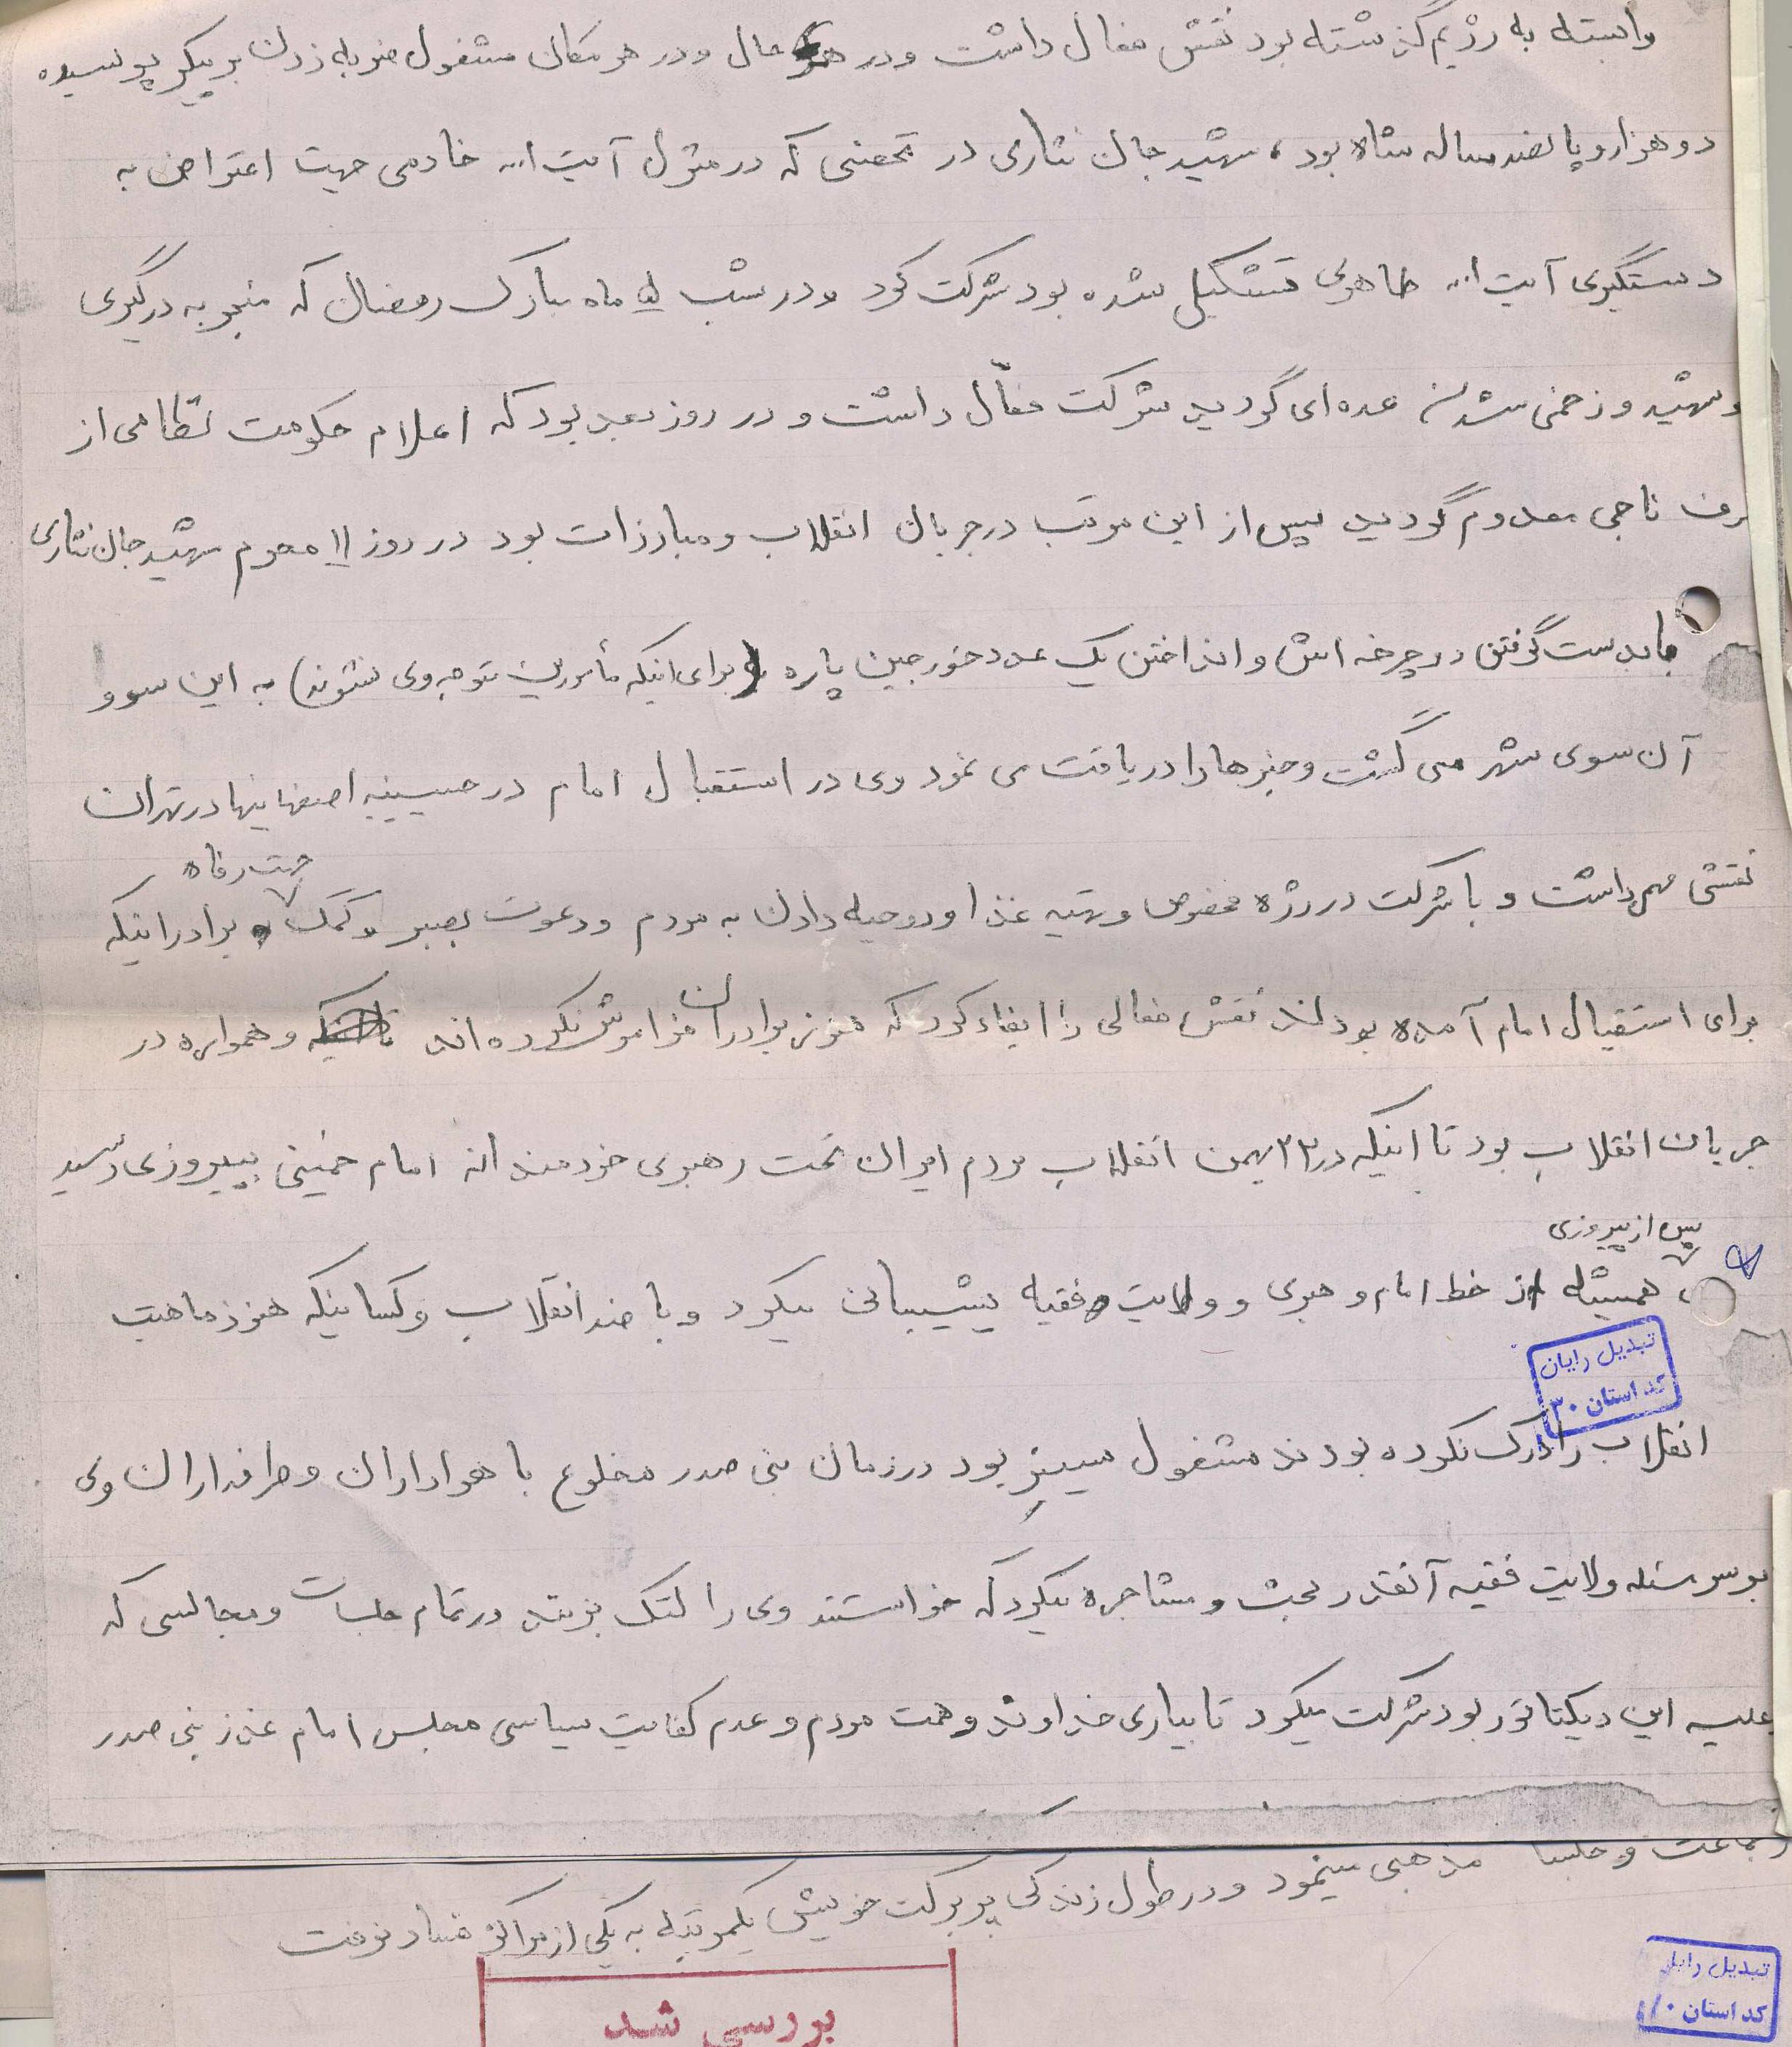 وابسته به رژیم گذشته بود نقش فعال داشت و در هر حال و در هر مکان مشغول ضربه زدن بر پیکر پوسیده
دو هزار و پانصد ساله شاه بود، شهید جان نثاری در تحصنی که در منزل آیت ا... خادمی جهت اعتراض به
دستگیری آیت ا... طاهری تشکیل شده بود شرکت کرد و در شب ۵ ماه مبارک رمضان که منجر به درگیری
و شهید و زخمی شدن عده ای گردید شرکت فعّال داشت و در روز بعد بود که اعلام حکومت نظامی از
طرف ناجی معدوم گردید پس از این مرتب در جریان انقلاب و مبارزات بود در روز ۱۱ محرم شهید جان نثاری
با بدست گرفتن دوچرخه اش و انداختن یک عدد خورجین پاره (برای اینکه مأمورین متوجه وی نشوند) به این سو و
آن سوی شهر می گشت و خبرها را دریافت می نمود وی در استقبال امام در حسینیه اصفهانیها در تهران
نقش مهم داشت و با شرکت در رژه مخصوص و تهیه غذا و روحیه دادن به مردم و دعوت بصبر و کمک جهت رفاه برادرانیکه
برای استقبال امام آمده بودند نقش فعالی را ایفاء کرد که هنوز برادران فراموش نکرده اند و همواره در
جریان انقلاب بود تا اینکه در ۲۲ بهمن انقلاب مردم ایران تحت رهبری خردمندانه امام خمینی بپیروزی رسید
پس از پیروزی، همیشه از خط امام و رهبری و ولایت فقیه پشتیبانی میکرد و با ضد انقلاب و کسانیکه هنوز ماهیت
تبدیل رایان
کد استان ۳۰
انقلاب را درک نکرده بودند مشغول ستیز بود در زمان بنی صدر مخلوع با هواداران و طرفداران وی
بر سر مسئله ولایت فقیه آنقدر بحث و مشاجره میکرد که خواستند وی را کتک بزنند در تمام جلسات و مجالسی که
علیه این دیکتاتور بود شرکت میکرد تا بیاری خداوند و همت مردم و عدم کفایت سیاسی مجلس امام عذر بنی صدر
جماعت و جلسا مذهبی مینمود و در طول زندگی پر برکت خویش یکمرتبه به یکی از مراکز فساد نرفت
تبدیل رایان
کد استان
بررسی شد